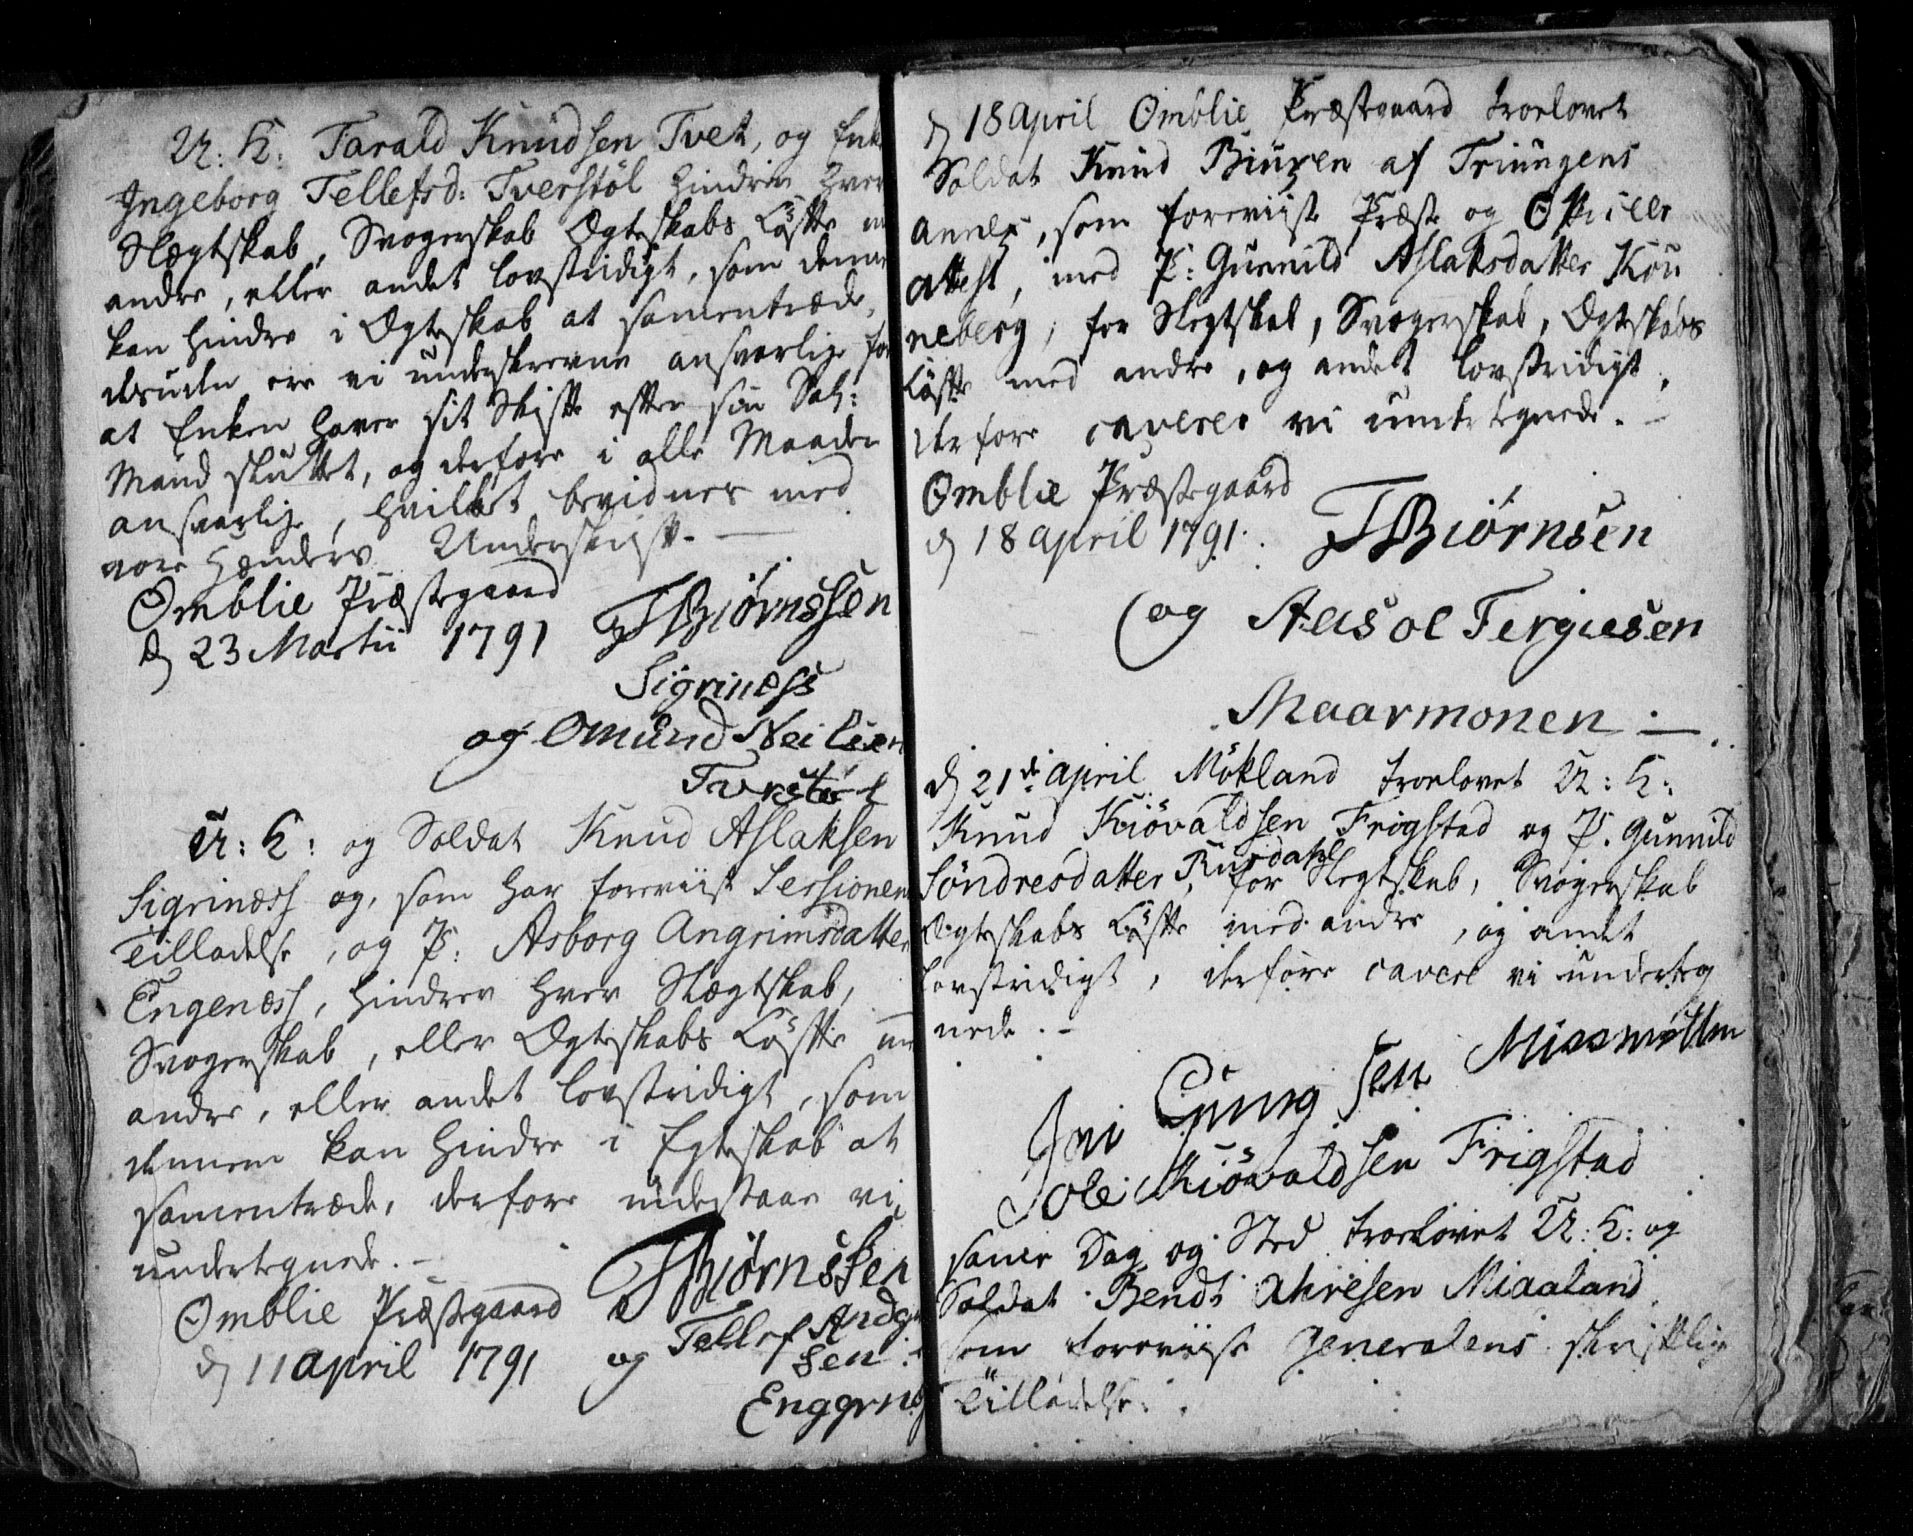 U: K: Tarald Knudsen Tvet, og Enk
Ingeborg Tellefsd: Tverstöl hindrer hver
Slægtskab, Svogerskab Ægteskabs Løfte m
andre, eller andet lovstridigt, som denne
kan hindre i Ægteskab at samentræde,
desuden ere vi underskrevne ansvarlige for
at Enken haver sit Skifte efter sin Sal:
Mand sluttet, og derfore i alle Maader
ansvarlige, hvilket bevidnes med
vore Hænders Underskrift. —
Omblie Præstegaard
d 23 Martii 1791 TBiørnssen
Sigrinæss
og Omund Neilsen
Tverstöl
U: K: og Soldat Knud Aslaksen
Sigrinæss og, som har foreviist Sessionen
Tilladelse, og P: Asborg Angrimsdatter
Engenæss, hindrer hver Slægtskab,
Svogerskab, eller Ægteskabs Løfte m
andre, eller andet lovstridigt, som
dennem kan hindre i Egteskab at
samentræde, derfore indestaae vi
undertegnede. —
Omblie Præstegaard TBiørnssen
d 11 April 1791 og Tellef Andg
sen
d 18 April Omblie Præstegaard troelovet
Soldat Knud Biuren af Triungens
Annex, som foreviiste Præste og Officeer
attest, med P: Gunnild Aslaksdatter Kou
neberg, for Slegtskab, Svogerskab, Ægteskabs
Løfte med andre, og andet lovstridigt,
derfore caverer vi undertegnede. —
Omblie Præstegaard
d 18 April 1791. TBiørnsen
og Aasol Tergiesen
Maarmonen —
d 21de April Mökland troelovet U: K:
Knud Kiövaldsen Frigstad og P. Gunnild
Söndresdatter Risdahl, for Slegtskab, Svogerskab
Ægteskabs Løfte med andre, og andet
lovstridigt, derfore cavere vi underteg
nede. —
Ole Kiövaldsen Frigstad
samme Dag og Sted troelovet U: K: og
Soldat Bendt Miaaland
som foreviiste Generalens skriftlige
Tilladelse.